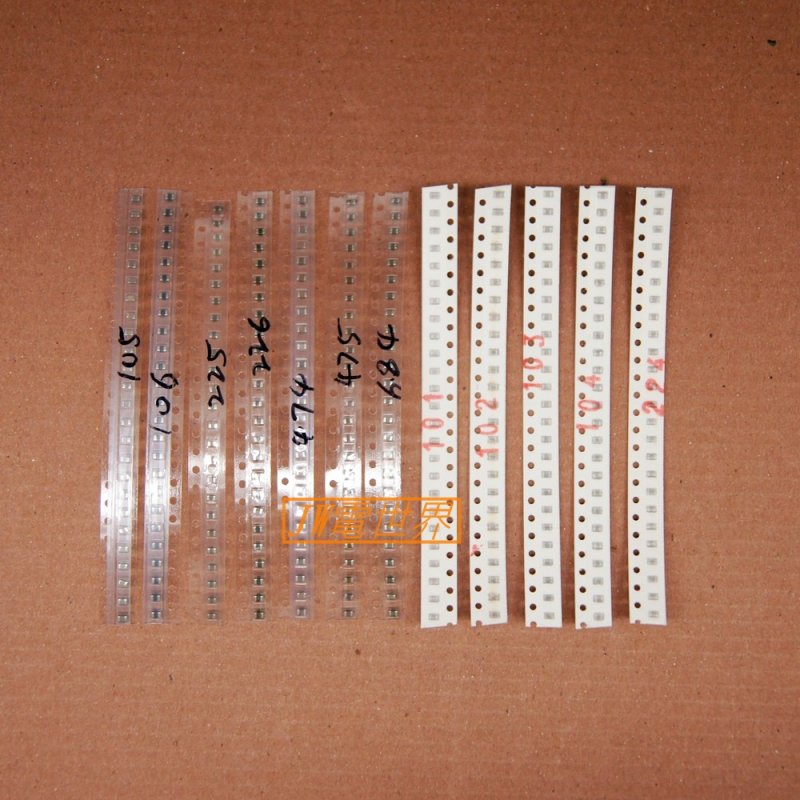 105
106
225
226
474
475
684
101
102
103
104
224
TW電世界